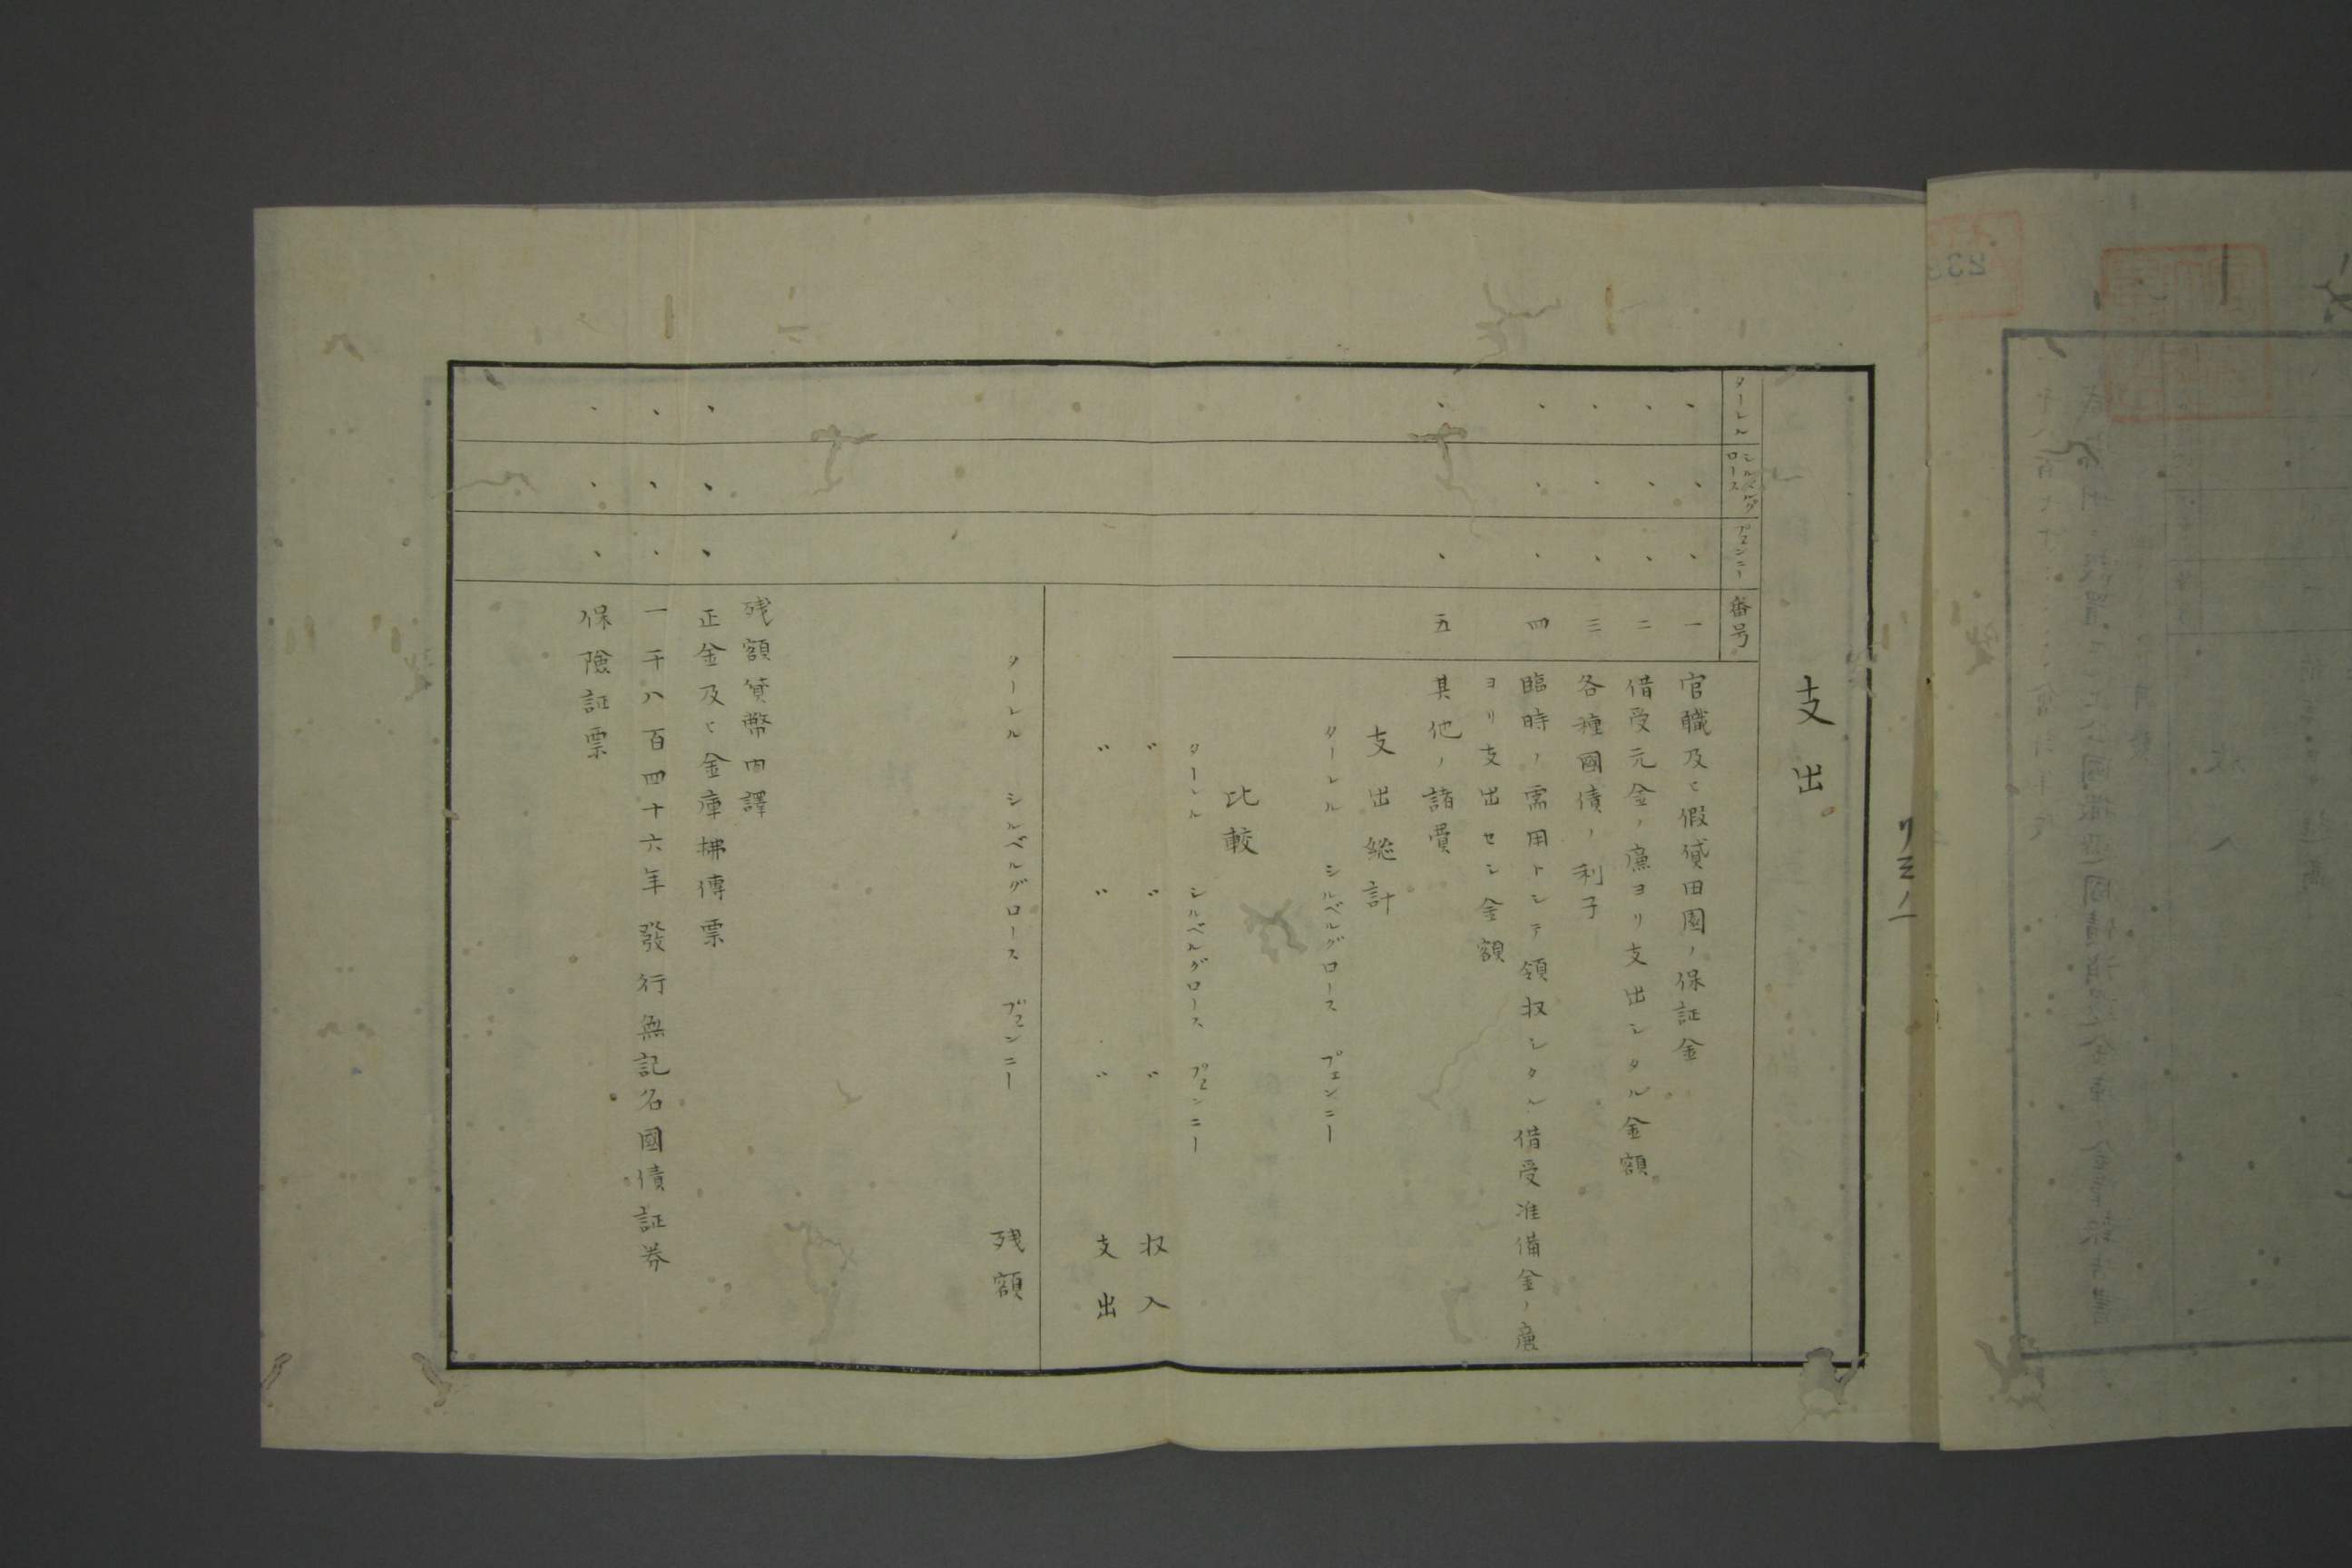 支出
ターレル
シルベルグロース
プェンニー
番号
一 官職及ヒ假貸田園ノ保証金
二 借受元金ノ廉ヨリ支出シタル金額
三 各種國債ノ利子
四 臨時ノ需用トシテ領収シタル借受准備金ノ廉
ヨリ支出セシ金額
五 其他ノ諸費
支出総計
ターレル シルベルグロース プェンニー
比較
ターレル シルベルグロース プェンニー
〃 〃 〃 収入
〃 〃 〃 支出
ターレル シルベルグロース プェンニー 残額
残額貨幣内譯
正金及ヒ金庫拂傳票
一千八百四十六年發行無記名國債証券
保険証票